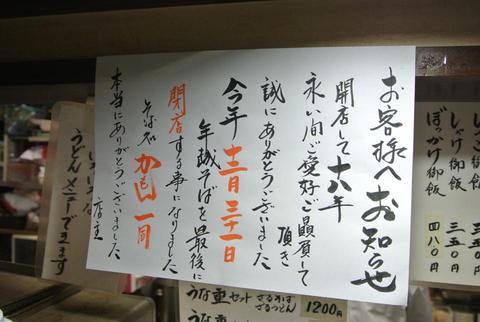 お客様へお知らせ
開店して十八年
永い間ご愛好ご贔屓して
頂き
誠にありがとうございました
今年 十二月三十一日
年越そばを最後に
閉店する事になりました
そば処 かも川 一同
本当にありがとうございました
店主
しゃけ御飯 三五〇円
ぶっかけ御飯 四八〇円
うどんメニューでます
うな重セット ざるそば
ざるうどん
1200円
うな重